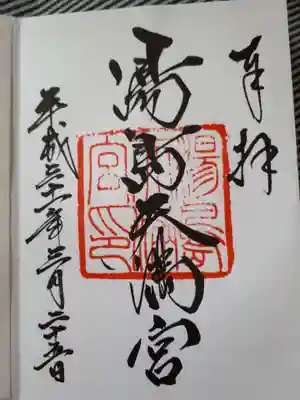 奉拝
湯島天満宮
平成 年三月二十五日
湯島
天満
宮印